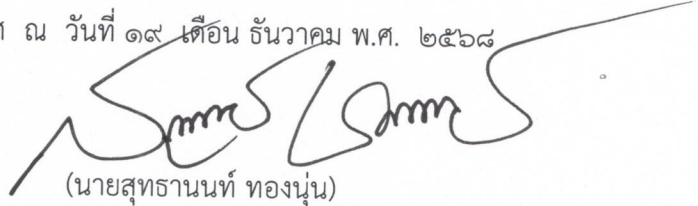 ณ วันที่ ๑๙ เดือน ธันวาคม พ.ศ. ๒๕๖๘
(นายสุทธานนท์ ทองนุ่น)